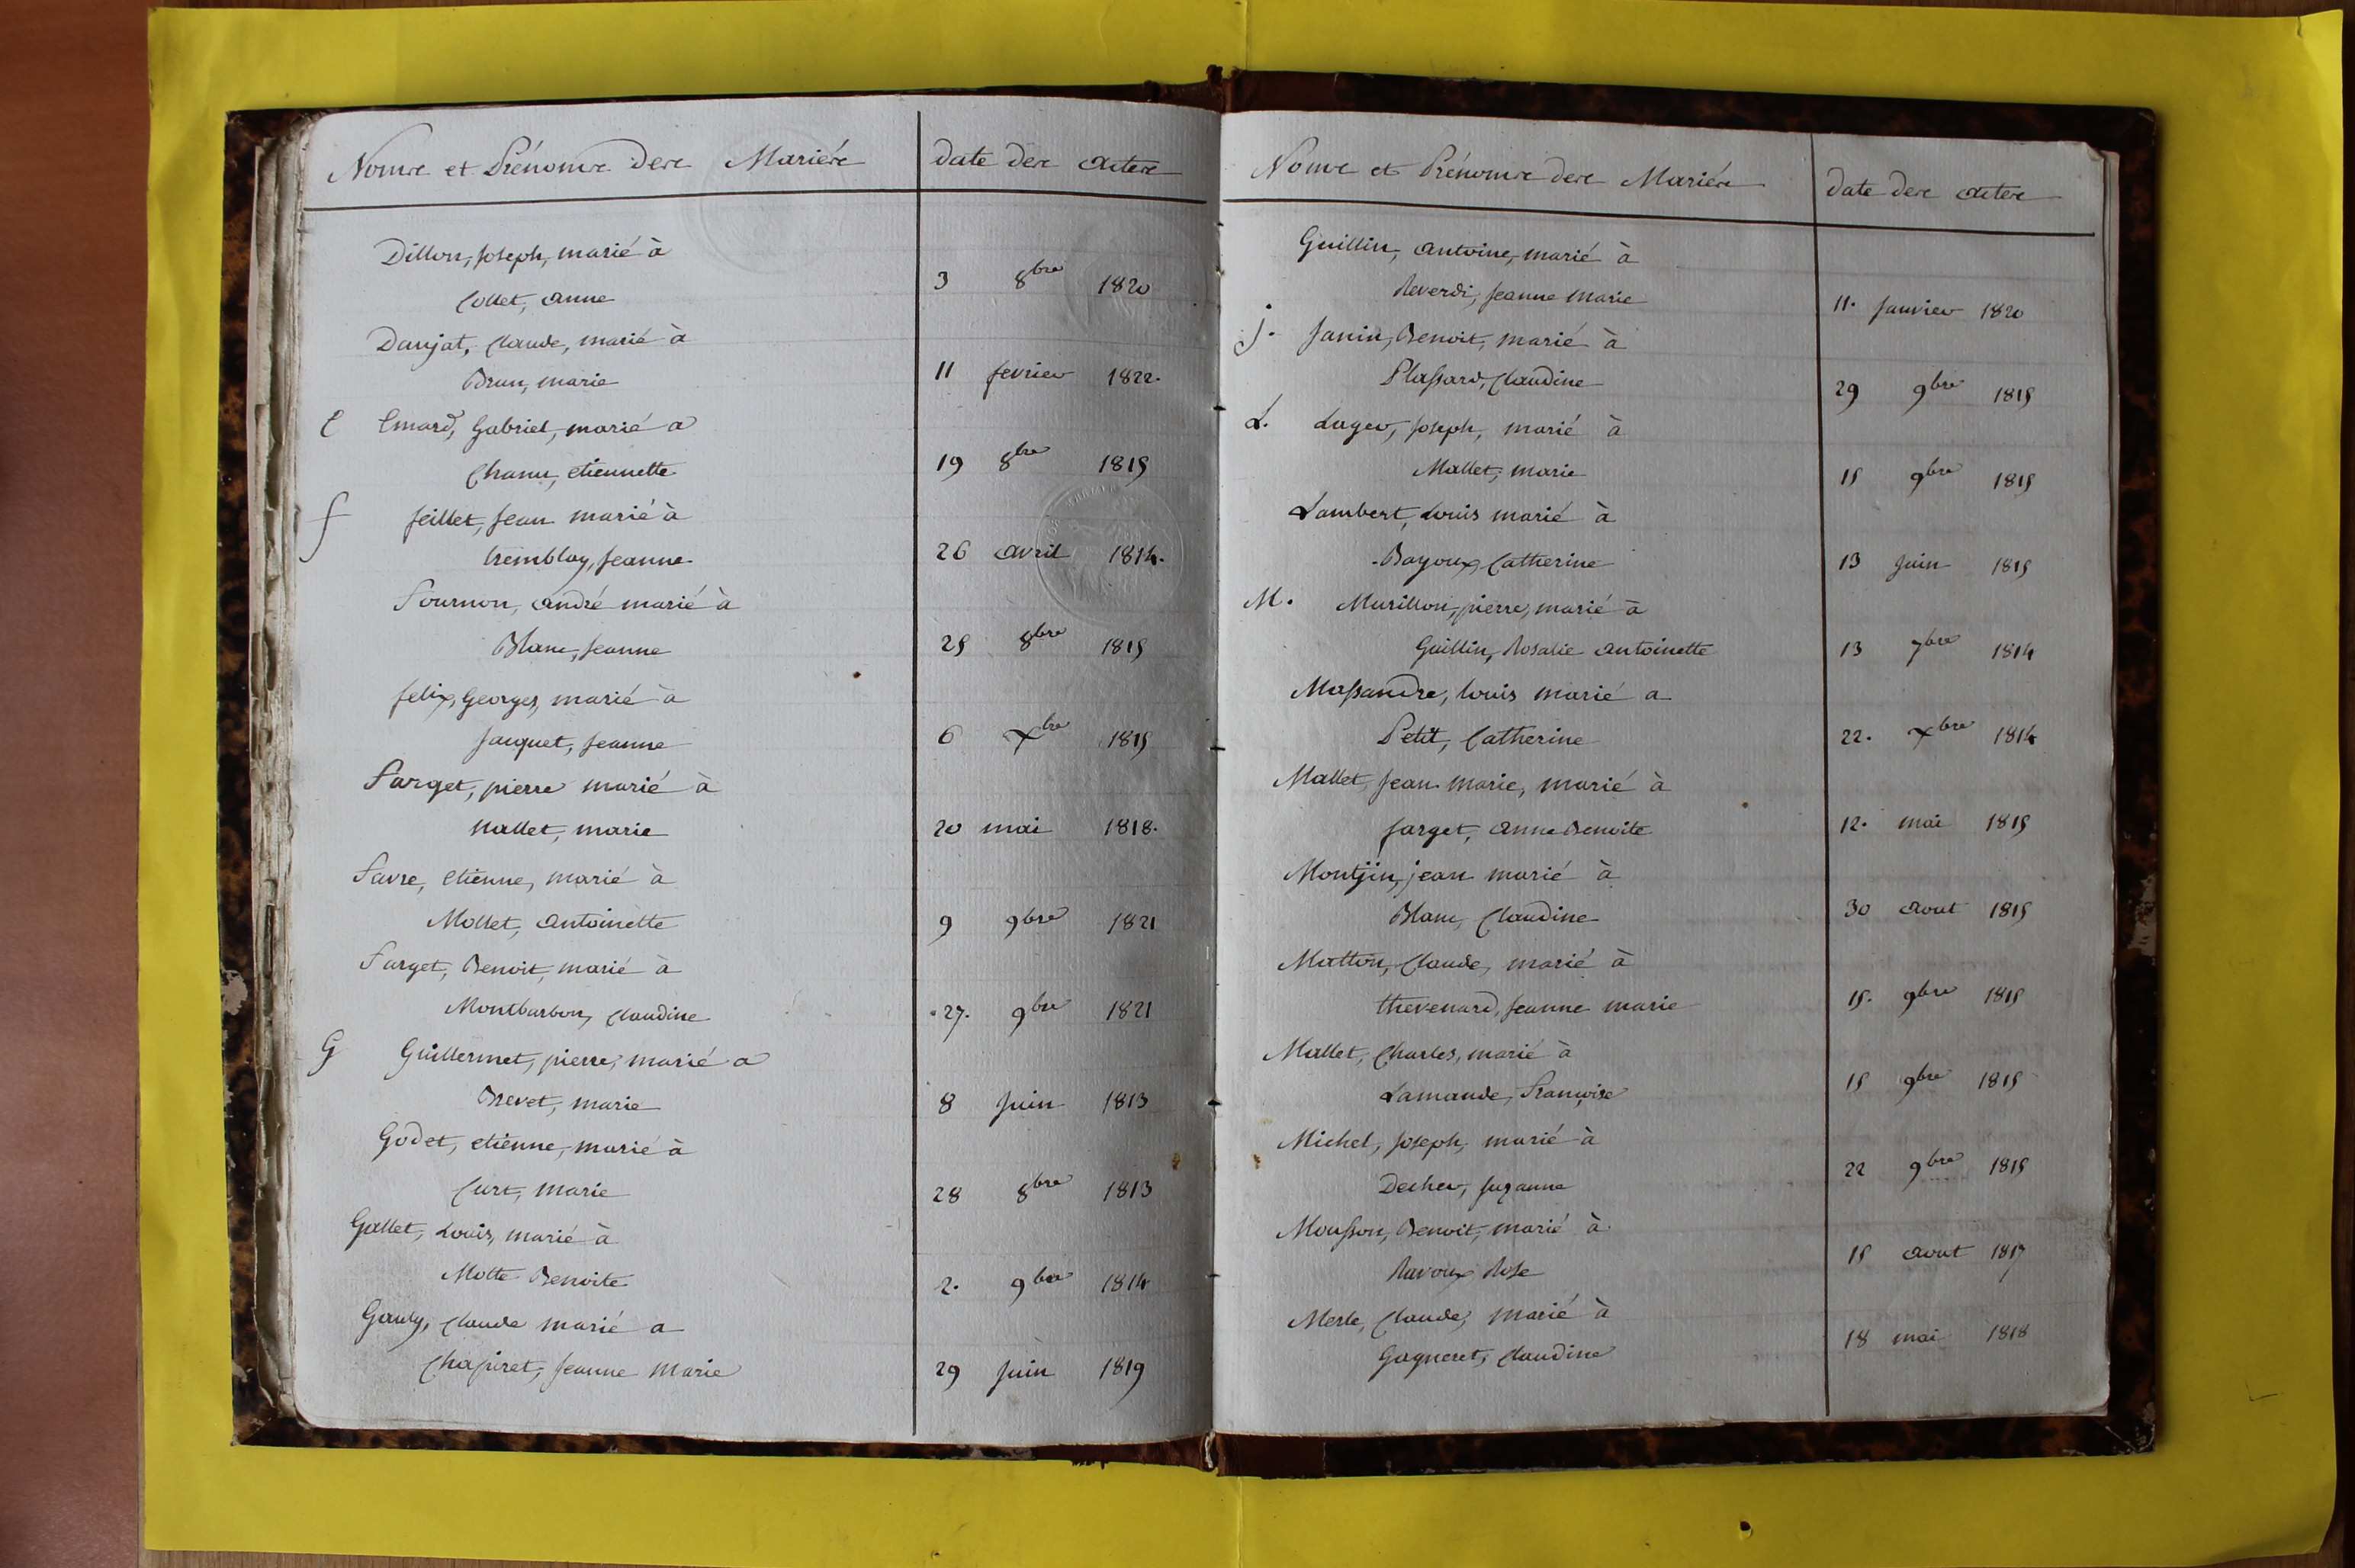 Noms et Prénoms des Mariés date des actes
Dillon, Joseph, marié à
Collet, anne 3 8bre 1820
Danjat, Claude, marié à
Brun, marie 11 fevrier 1822.
E Emard, Gabriel, marié a
Chanu, etiennette 19 8bre 1815
f feillet, Jean marié à
tremblay, Jeanne 26 avril 1814.
Fournon, andré marié à
Blanc, Jeanne 25 8bre 1815
felix, Georges, marié à
Jacquet, Jeanne 6 Xbre 1815
Farget, pierre marié à
Mallet, marie 20 mai 1818.
Favre, etienne, marié à
Mollet, antoinette 9 9bre 1821
Farget, Benoit, marié à
Montbarbon, Claudine 27. 9bre 1821
G Guillermet, pierre, marié a
Brevet, marie 8 Juin 1813
Godet, etienne, marié à
Curt, marie 28 8bre 1813
Gallet, Louis, marié à
Motte Benoite 2. 9bre 1814
Gauly, Claude marié a
Chapiret, Jeanne Marie 29 Juin 1819
Noms et Prénoms des Mariés date des actes
Guillin, antoine, marié à
Reverdi, Jeanne Marie 11. Janvier 1820
j. Janin, Benoit, marié à
Plassard, Claudine 29 9bre 1815
L. Lager, Joseph, marié à
Mallet, marie 15 9bre 1815
Lambert, Louis marié à
Bayoux, Catherine 13 Juin 1815
M. Murillon, pierre, marié à
Guillin, Rosalie antoinette 13 7bre 1814
Massandre, louis marié a
Petit, Catherine 22. Xbre 1814
Mallet, Jean marie, marié à
farget, anne Benoite 12. mai 1815
Montjin, jean marié à
Blanc, Claudine 30 aout 1815
Matton, Claude, marié à
thevenard, Jeanne marie 15. 9bre 1815
Mallet, Charles, marié à
Lamande, Françoise 15 9bre 1815
Michel, Joseph, marié à
Decher, Suzanne 22 9bre 1815
Mousson, Benoit, marié à
Ravoux Rose 15 aout 1817
Merle, Claude, marié à
Gagneret, Claudine 18 mai 1818